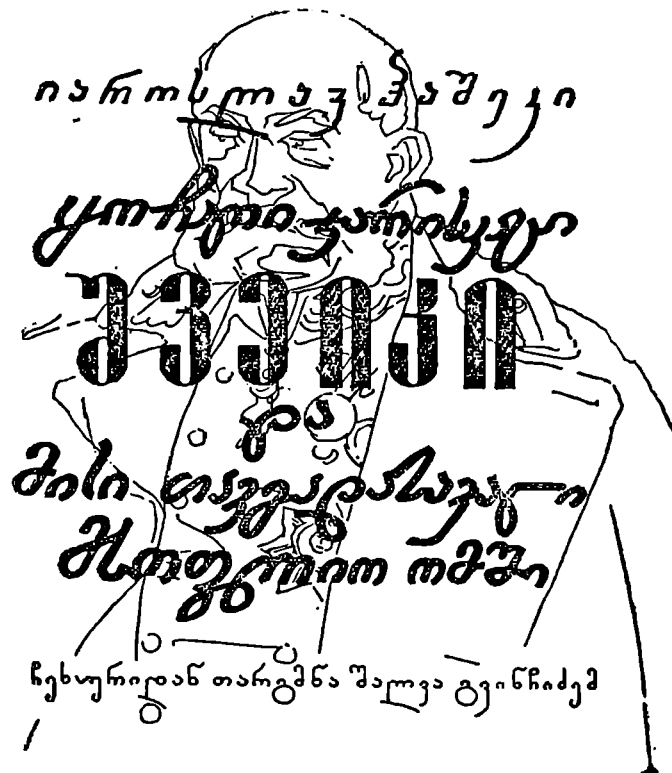 იაროსლავ ჰაშეკი
ყოჩაღი ჯარისკაცი
შვეიკი
და
მისი თავგადასავალი
მსოფლიო ომში
ჩეხურიდან თარგმნა შალვა გვინჩიძემ